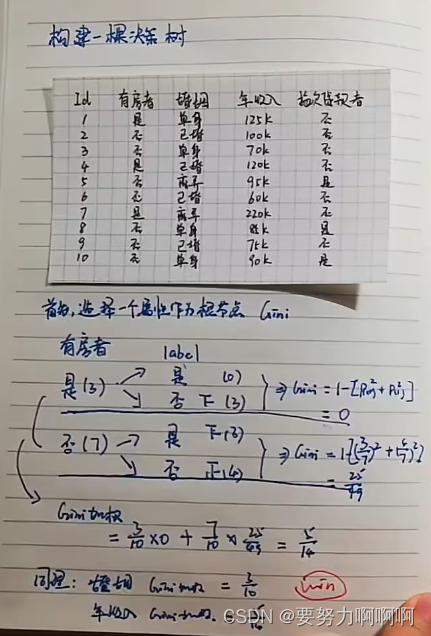 构建一棵决策树
Id 有房者 婚姻 年收入 拖欠贷款者
1 是 单身 125k 否
2 否 已婚 100k 否
3 否 单身 70k 否
4 是 已婚 120k 否
5 否 离异 95k 是
6 否 已婚 60k 否
7 是 离异 220k 否
8 否 单身 85k 是
9 否 已婚 75k 否
10 否 单身 90k 是
首先,选择一个属性作为根节点 Gini
有房者 label
是(3) → 是 (0)
→ 否 下(3)
⇒ Gini = 1-
= 0
否(7) → 是 下(3)
→ 否 正(4)
⇒ Gini = 1-
Gini加权
= 3/10 ×0 + 7/10 ×
= 5/14
同理: 婚姻 Gini加权 = 3/10 min
年收入 Gini加权 =
CSDN @要努力啊啊啊